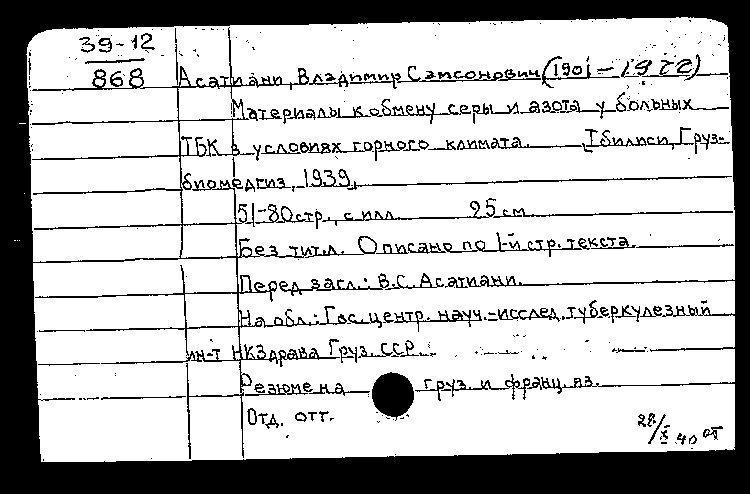 39-12
868
Асатиани, Владимир Самсонович (1901 – 1972)
Материалы к обмену серы и азота у больных
ТБК в условиях горного климата. Тбилиси, Груз-
биомедгиз, 1939,
51-80 стр., с илл. 25 см
Без тит. л. Описано по 1-й стр. текста.
Перед загл.: В.С. Асатиани.
На обл.: Гос. центр. науч.-исслед. туберкулезный
ин-т НКЗдрава Груз. ССР.
Резюме на груз. и франц. яз.
Отд. отт.
28/X 40